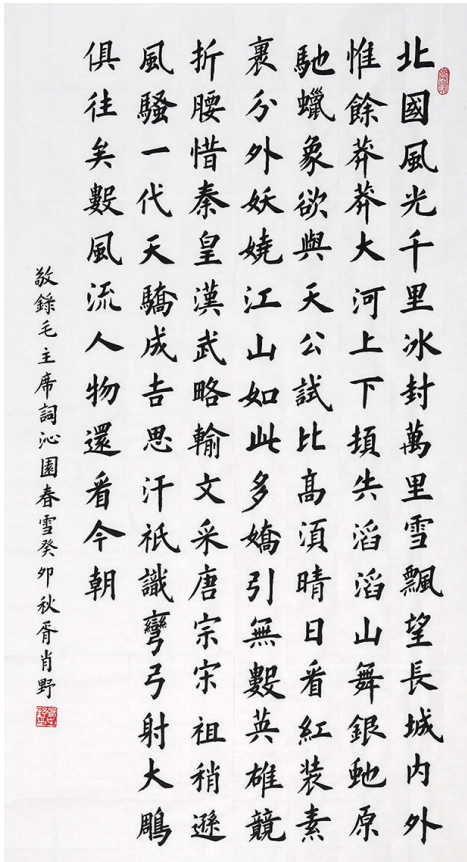 北國風光千里冰封萬里雪飄望長城内外
惟餘莽莽大河上下頓失滔滔山舞銀虵原
馳蠟象欲與天公試比高須晴日看紅裝素
裹分外妖嬈江山如此多嬌引無數英雄競
折腰惜秦皇漢武略輸文采唐宗宋祖稍遜
風騷一代天驕成吉思汗祇識彎弓射大鵰
俱往矣數風流人物還看今朝
敬錄毛主席詞沁園春雪癸卯秋胥肖野